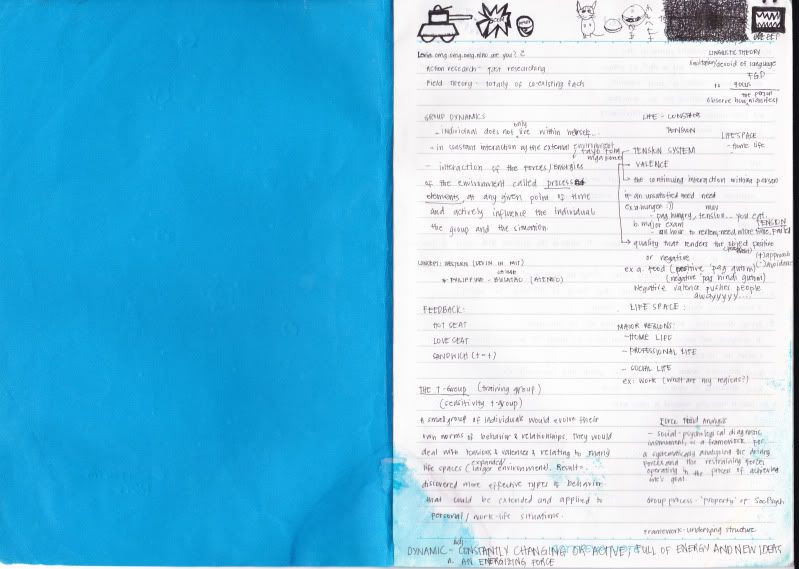 Lewin omg.omg.omg.nino are you? 2
Action research - fast researching
Field theory - totally of co-existing facts
GROUP DYNAMICS
- individual does not only live within himself...
- in constant interaction w/ the external environment
- interaction of the forces / energies
of the environment called process
elements, at any given point of time
and actively influence the individual
the group and the situation
CONCEPT: WESTERN (LEWIN IN MIT)
* PHILIPPINE - BULATAO (ATENEO)
FEEDBACK:
HOT SEAT
LOVE SEAT
SANDWICH (+ - +)
THE T-Group (training group)
(sensitivity t-group)
A small group of individuals would evolve their
own norms of behavior & relationships. They would
deal with tensions & valences & relating to many
life spaces (expanded larger environment). Result =
discovered more effective types of behavior
that could be extended and applied to
personal / work-life situations.
LINGUISTIC THEORY
/devoid of language
FGD
FOCUS
the person
observe how manifest
LIFE -
TENSION
LIFE SPACE
- home life
tayo tom
mga pone
TENSION SYSTEM
- VALENCE
the continuing interaction within a person
- an unsatisfied need need
ex a. hunger :))
- pag hungry, tension... you eat.
b. major exam
TENSION
- an hour to review, need more time. FAIL!
quality that renders the object positive
or negative
(+) approach
(-) avoidance
ex a. food (positive 'pag gutom)
(negative 'pag hindi gutom)
Negative valence pushes people
awayyyyy...
LIFE SPACE:
MAJOR REGIONS:
- HOME LIFE
- PROFESSIONAL LIFE
- SOCIAL LIFE
ex: work (what are my regions?)
Force Field Analysis
- social-psychological diagnostic
instrument, is a framework for
systematically analyzing the driving
forces and the restraining forces
operating in the process of achieving
one's goal.
Group process - 'property' of SocPsych
Framework - underlying structure
adj.
DYNAMIC - CONSTANTLY CHANGING OR ACTIVE, FULL OF ENERGY AND NEW IDEAS
n. AN ENERGIZING FORCE